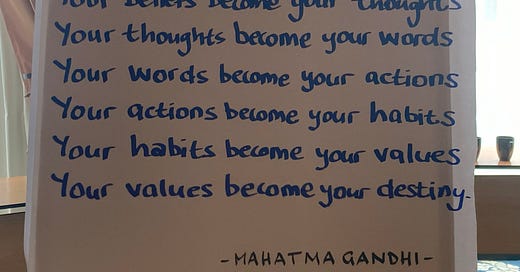 Your beliefs become your thoughts
Your thoughts become your words
Your words become your actions
Your actions become your habits
Your habits become your values
Your values become your destiny.
-MAHATMA GANDHI-